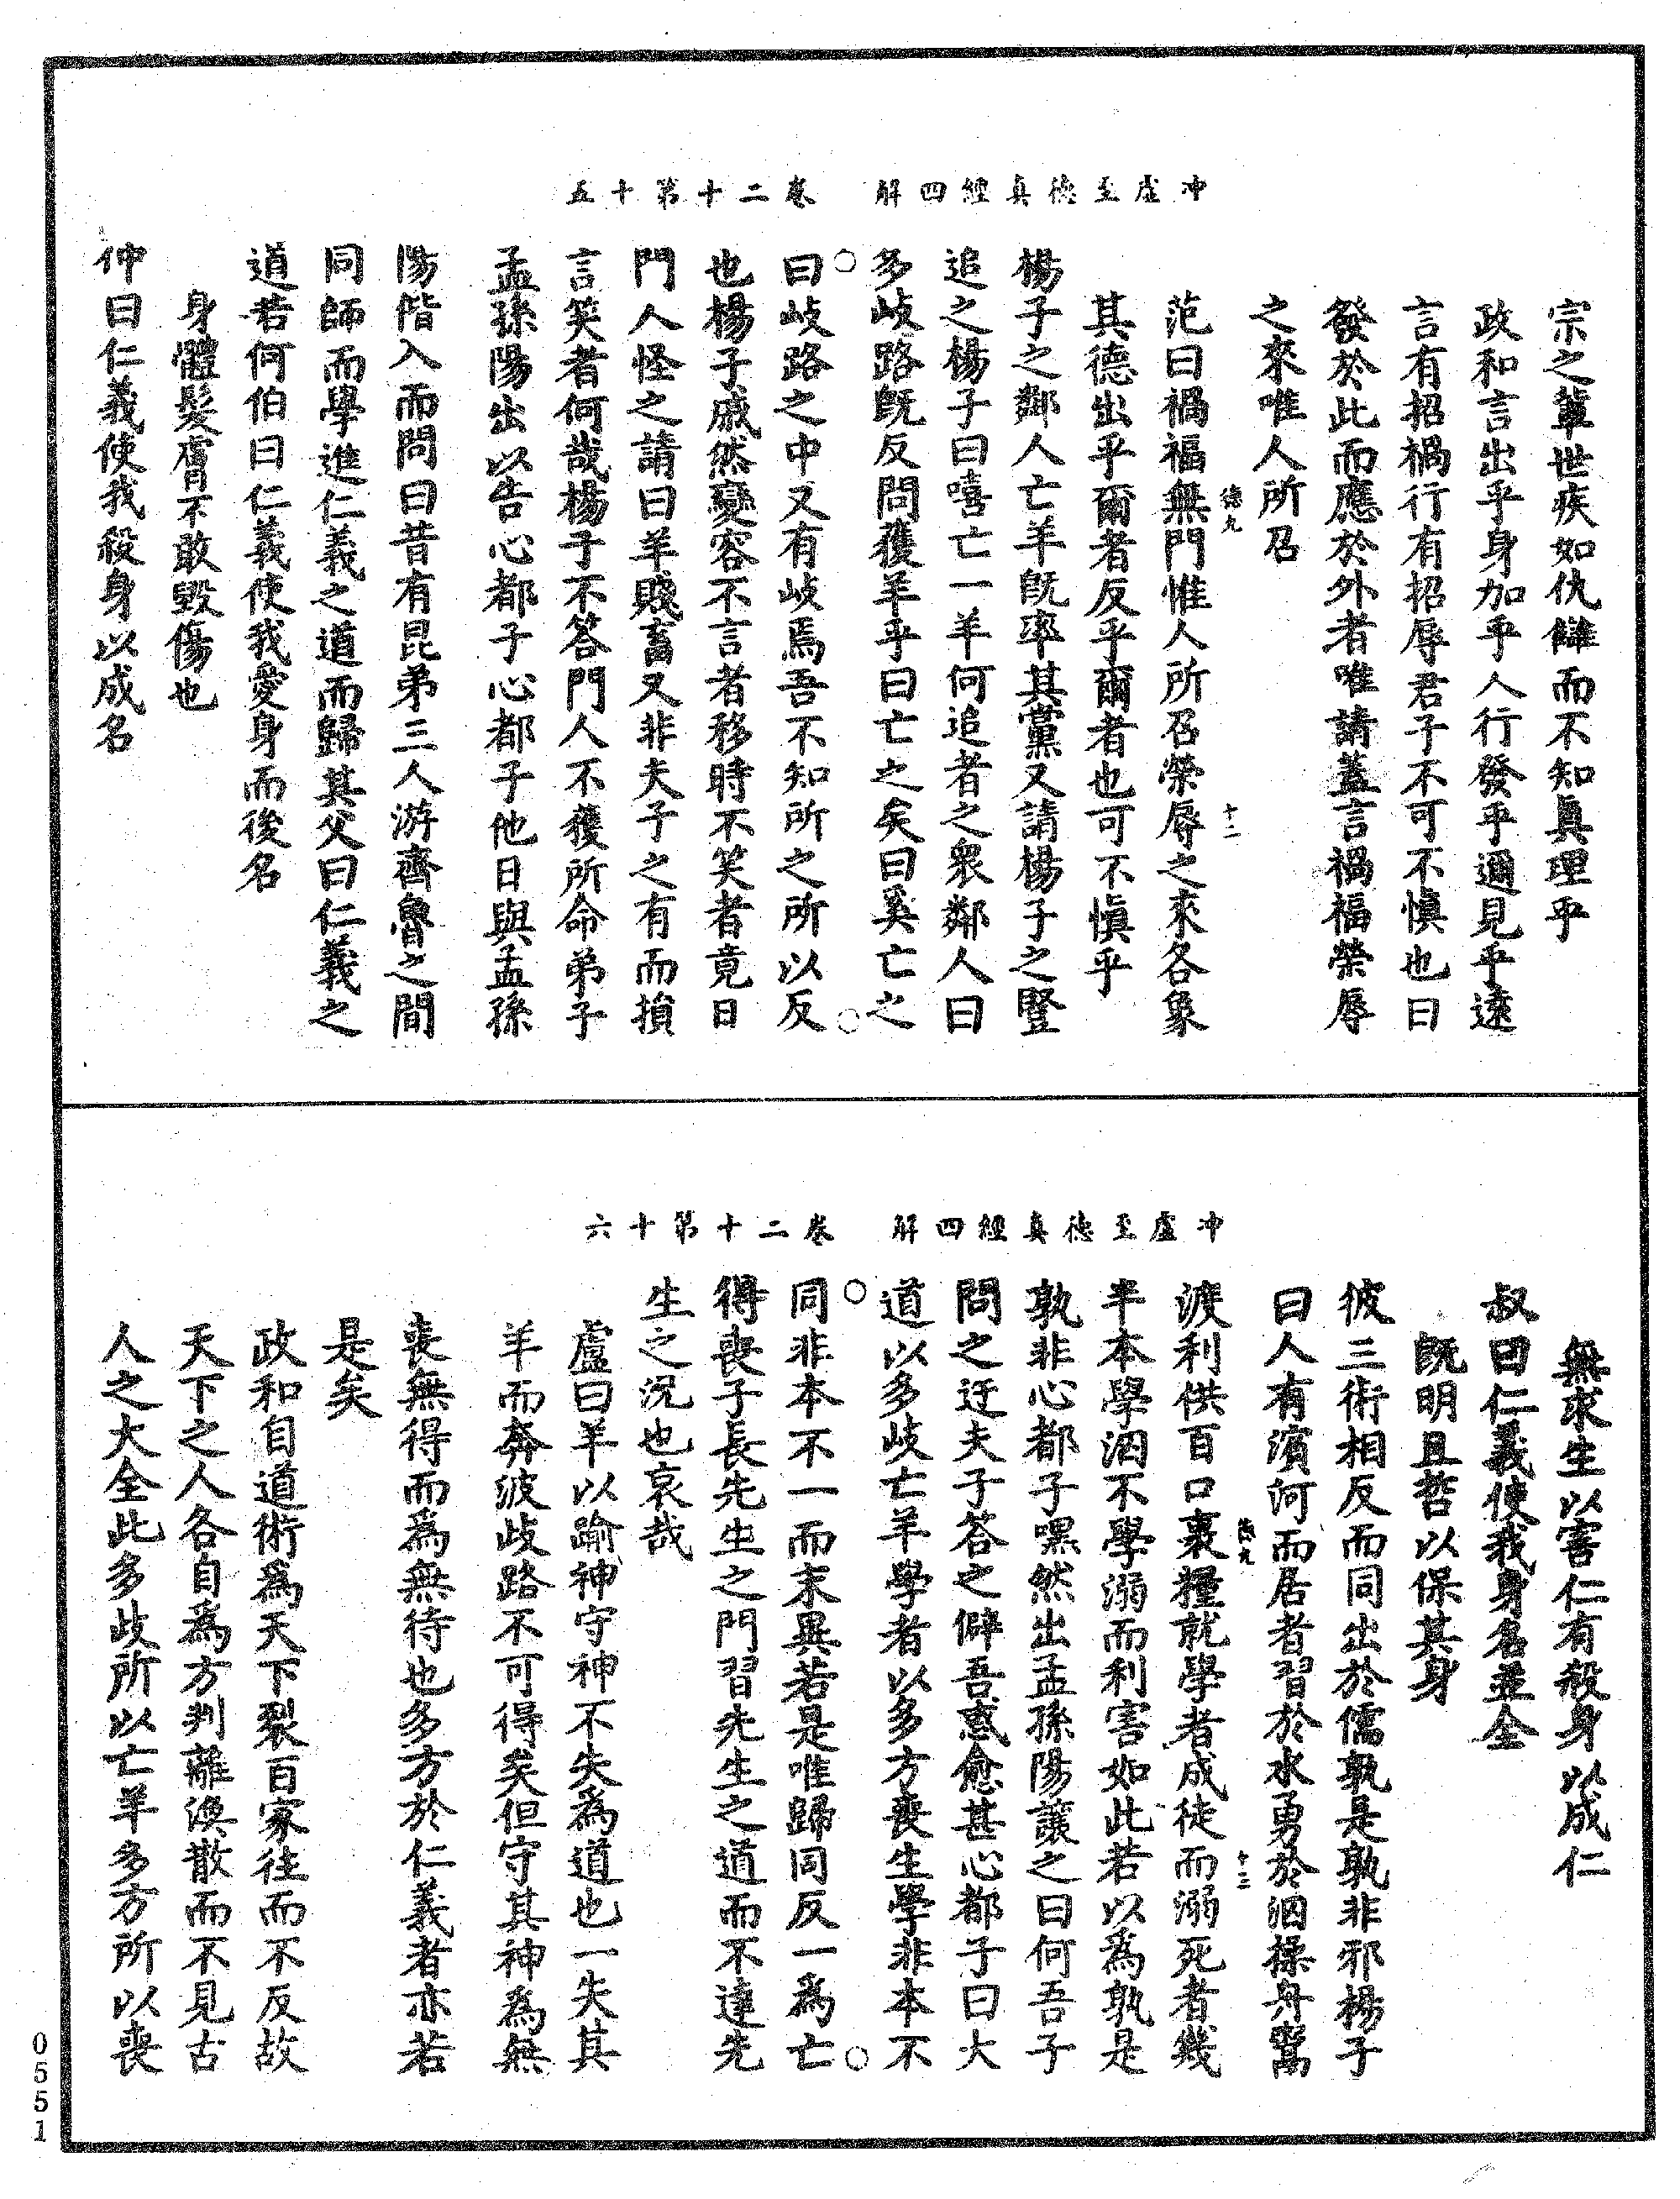 冲虛至德真經四解　卷二十第十五
宗之輩世疾如仇讎而不知真理乎
政和言出乎身加乎人行發乎邇見乎遠
言有招禍行有招辱君子不可不慎也曰
發於此而應於外者唯請蓋言禍福榮辱
之來唯人所召
德九　十二
范曰禍福無門惟人所召榮辱之來各象
其德出乎爾者反乎爾者也可不慎乎
楊子之鄰人亡羊既率其黨又請楊子之豎
追之楊子曰嘻亡一羊何追者之衆鄰人曰
多歧路既反問獲羊乎曰亡之矣曰奚亡之
曰歧路之中又有歧焉吾不知所之所以反
也楊子戚然變容不言者移時不笑者竟日
門人怪之請曰羊賤畜又非夫子之有而損
言笑者何哉楊子不答門人不獲所命弟子
孟孫陽出以告心都子心都子他日與孟孫
陽偕入而問曰昔有昆弟三人游齊魯之間
同師而學進仁義之道而歸其父曰仁義之
道若何伯曰仁義使我愛身而後名
身體髮膚不敢毀傷也
仲曰仁義使我殺身以成名
冲虛至德真經四解　卷二十第十六
無求生以害仁有殺身以成仁
叔曰仁義使我身名並全
既明且哲以保其身
彼三術相反而同出於儒孰是孰非邪楊子
曰人有濱河而居者習於水勇於泅操舟鬻
德九　十三
渡利供百口裹糧就學者成徒而溺死者幾
半本學泅不學溺而利害如此若以為孰是
孰非心都子嘿然出孟孫陽讓之曰何吾子
問之迂夫子答之僻吾惑愈甚心都子曰大
道以多歧亡羊學者以多方喪生學非本不
同非本不一而末異若是唯歸同反一為亡
得喪子長先生之門習先生之道而不達先
生之況也哀哉
盧曰羊以踰神守神不失為道也一失其
羊而奔波歧路不可得矣但守其神為無
喪無得而為無待也多方於仁義者亦若
是矣
政和自道術為天下裂百家往而不反故
天下之人各自為方判離渙散而不見古
人之大全此多歧所以亡羊多方所以喪
0551